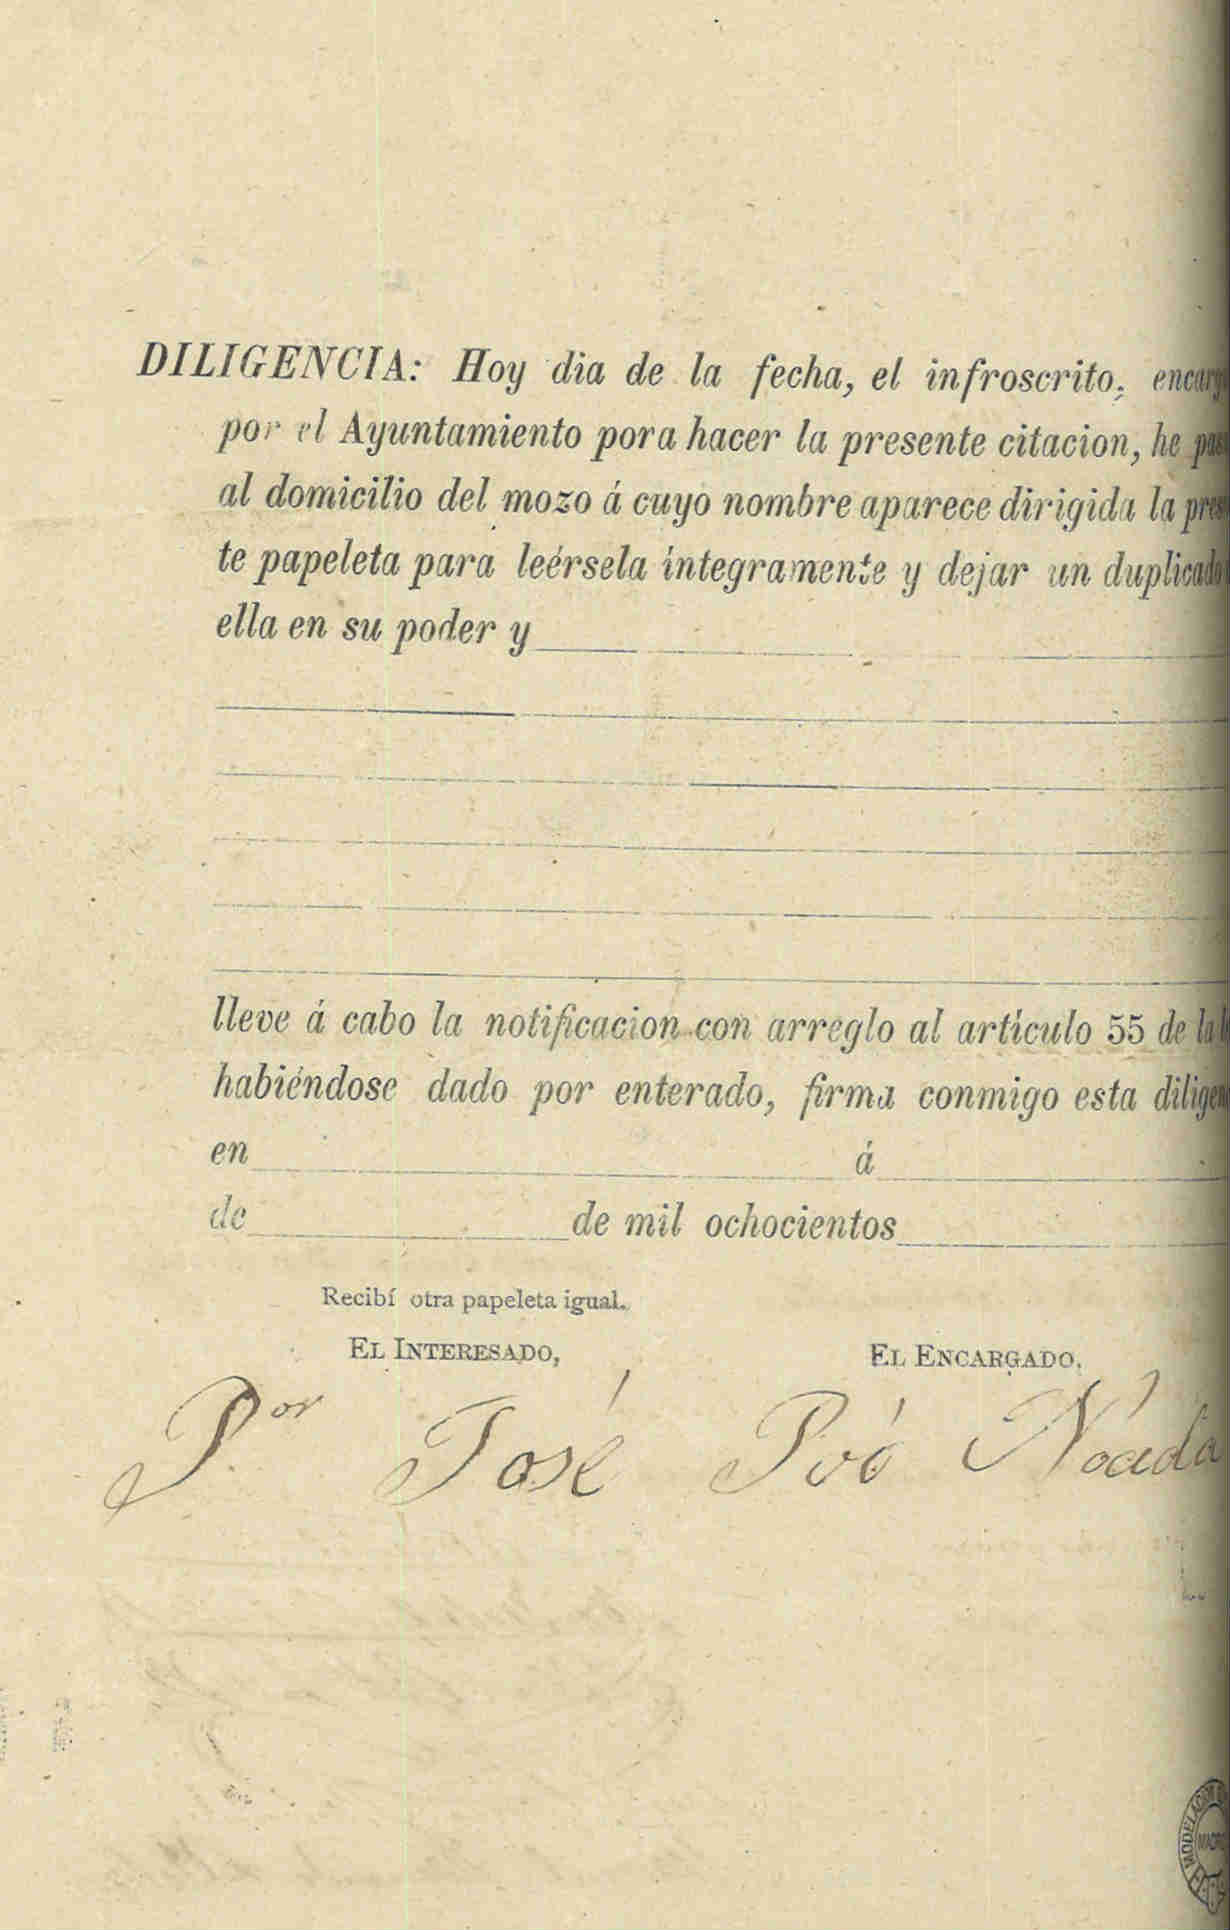 DILIGENCIA: Hoy dia de la fecha, el infroscrito,
por el Ayuntamiento pora hacer la presente citacion, he
al domicilio del mozo á cuyo nombre aparece dirigida la
te papeleta para leérsela íntegramente y dejar un duplicado
ella en su poder y
lleve á cabo la notificacion con arreglo al artículo 55 de la
habiéndose dado por enterado, firma conmigo esta
en á
de de mil ochocientos
Recibí otra papeleta igual.
EL INTERESADO,
EL ENCARGADO.
Por José